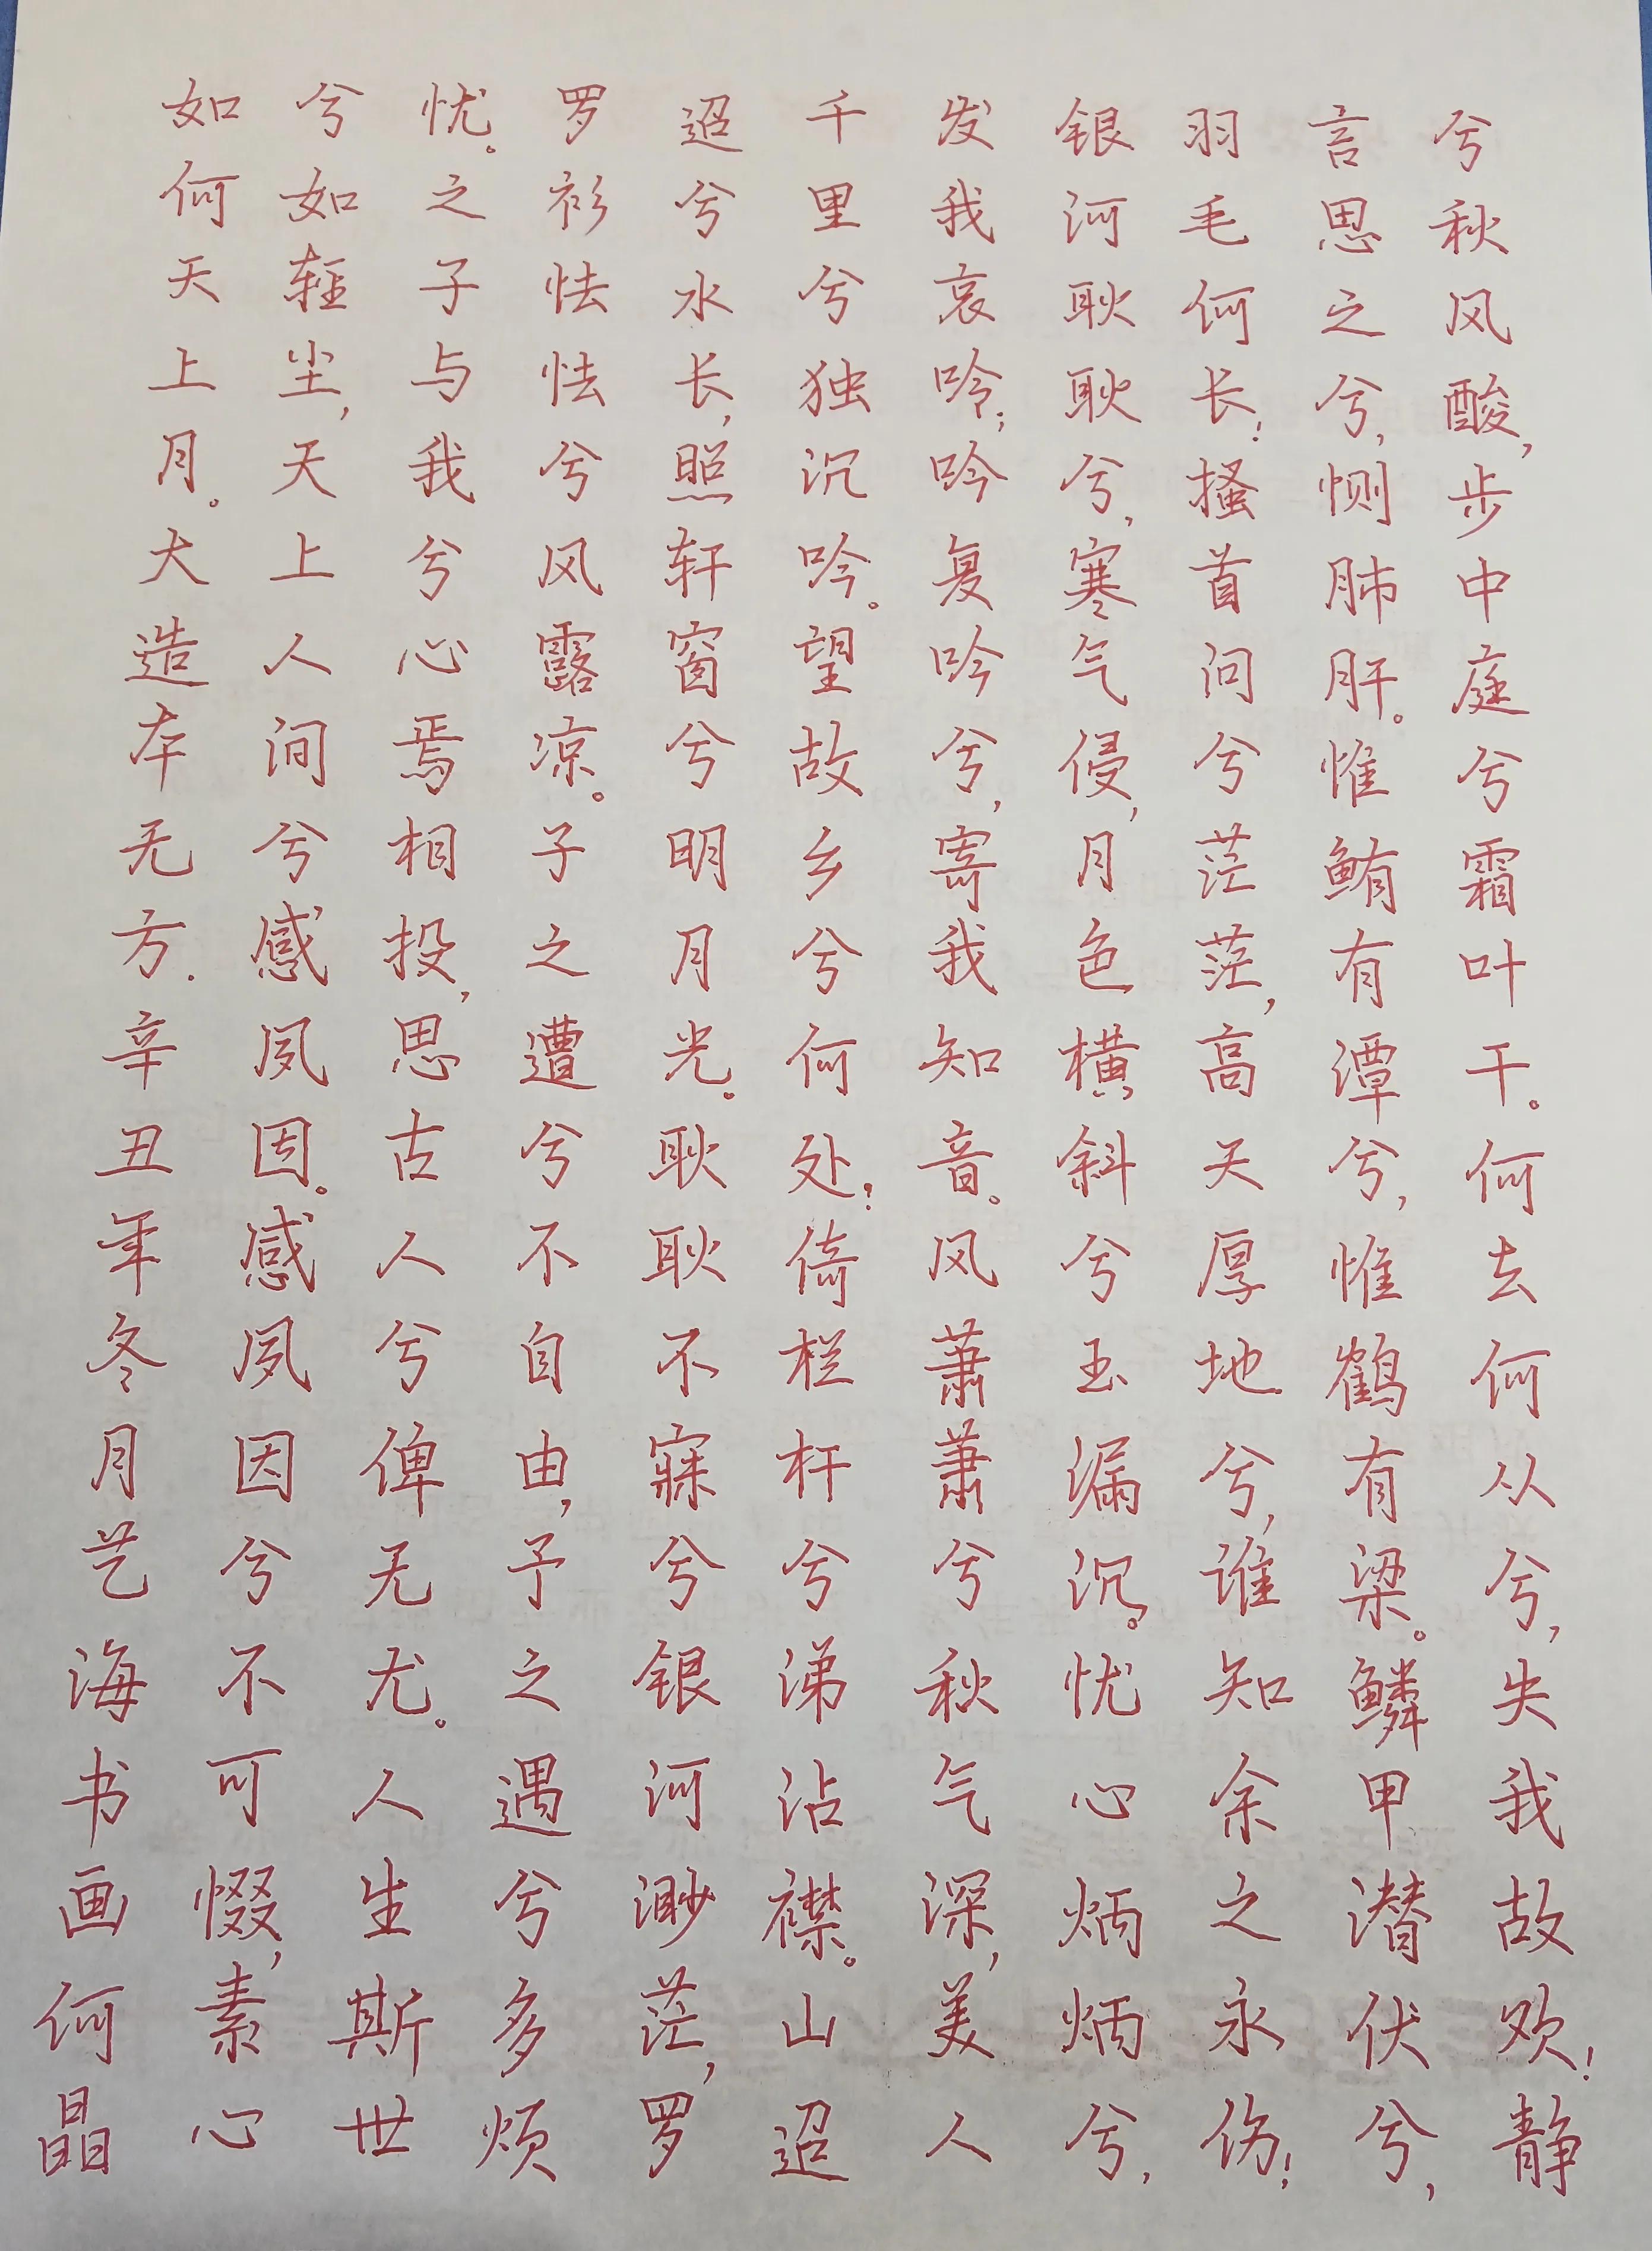 兮秋风酸,步中庭兮霜叶干。何去何从兮,失我故欢!静
言思之兮,恻肺肝。惟鲔有潭兮,惟鹤有梁。鳞甲潜伏兮,
羽毛何长!搔首问兮茫茫,高天厚地兮,谁知余之永伤!
银河耿耿兮,寒气侵,月色横斜兮玉漏沉。忧心炳炳兮,
发我哀吟;吟复吟兮,寄我知音。风萧萧兮秋气深,美人
千里兮独沉吟。望故乡兮何处?倚栏杆兮涕沾襟。山迢
迢兮水长,照轩窗兮明月光。耿耿不寐兮银河渺茫,罗
罗衫怯怯兮风露凉。子之遭兮不自由,予之遇兮多烦
忧。之子与我兮心焉相投,思古人兮俾无尤。人生斯世
兮如轻尘,天上人间兮感夙因。感夙因兮不可惙,素心
如何天上月。大造本无方.辛丑年冬月艺海书画何晶